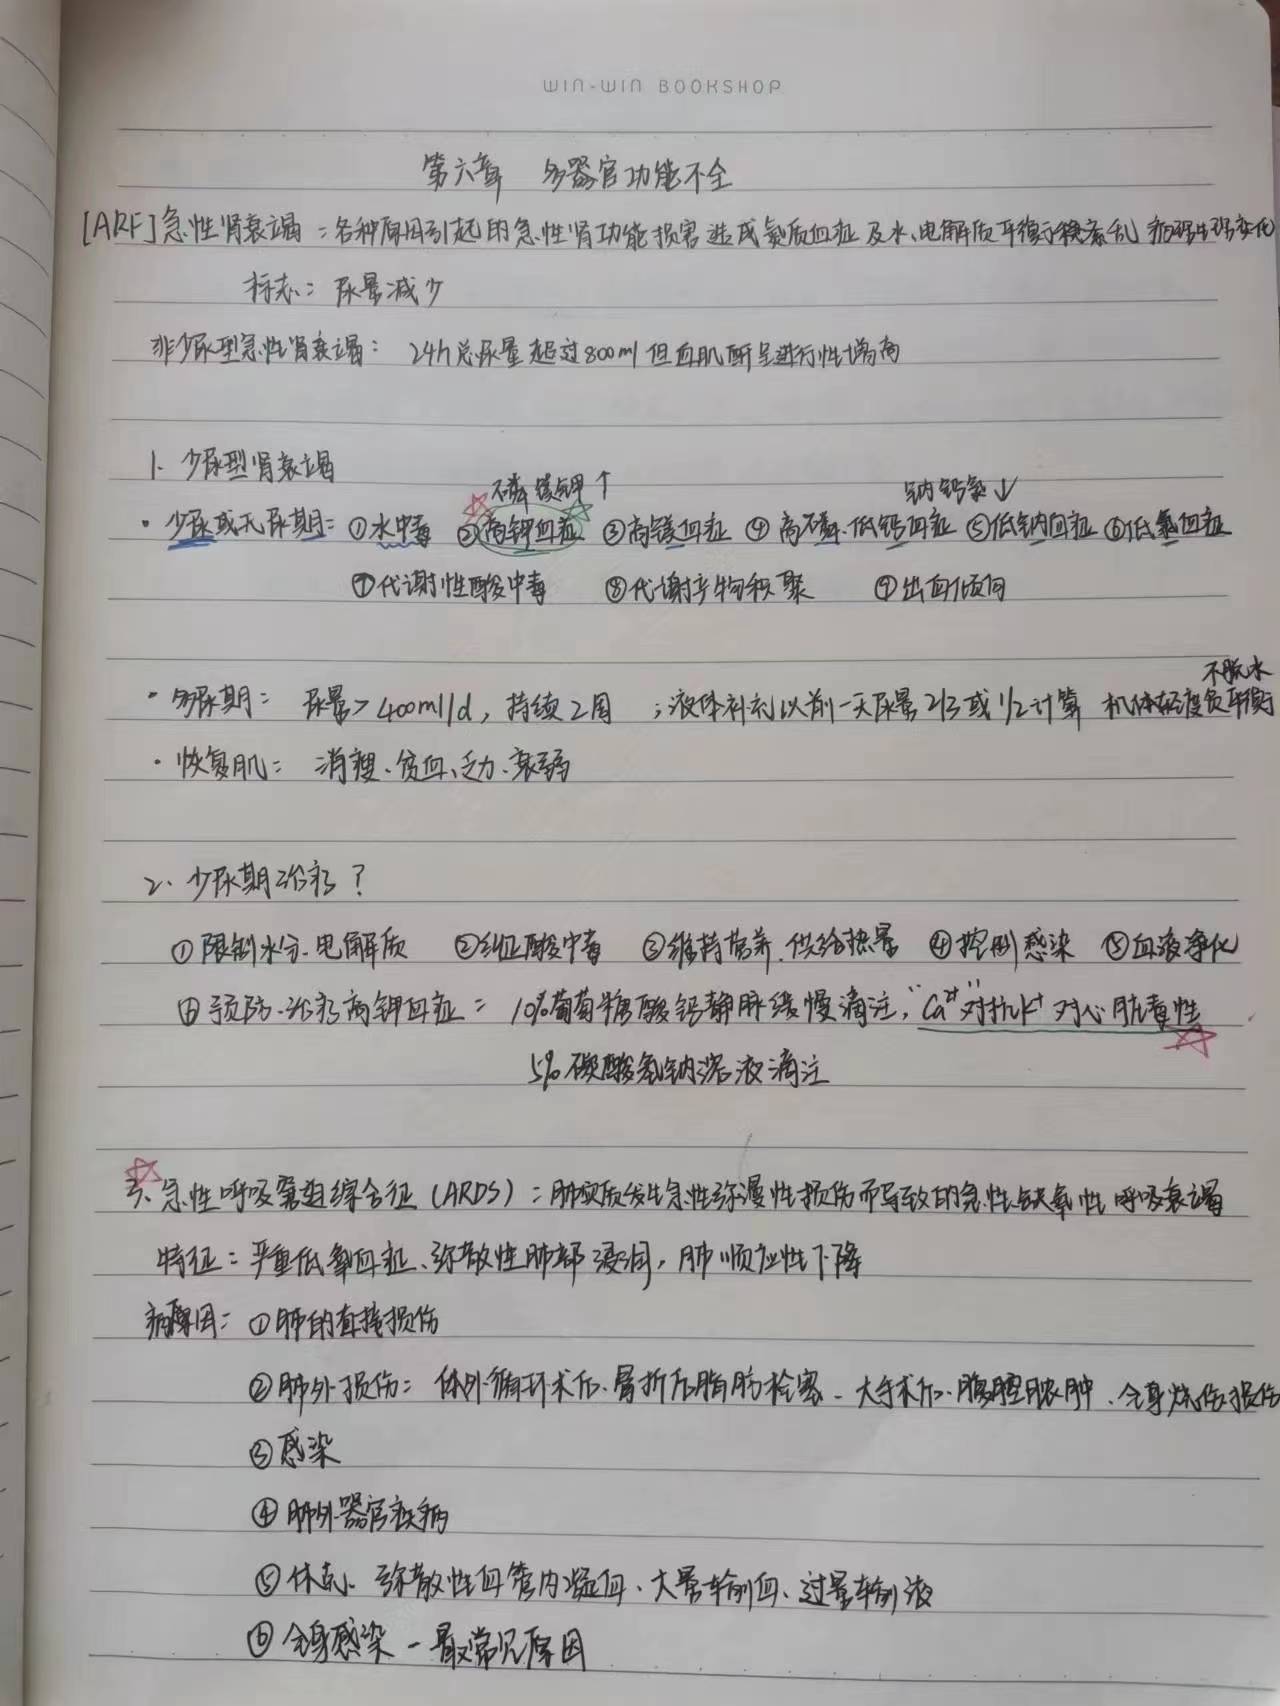 WIN-WIN BOOKSHOP
第六章 多器官功能不全
[ARF]急性肾衰竭：各种原因引起的急性肾功能损害造成氮质血症及水、电解质平衡紊乱 病理生理变化
标志：尿量减少
非少尿型急性肾衰竭：24h总尿量超过800ml但血肌酐呈进行性增高
1. 少尿型肾衰竭
磷镁钾↑ 钠钙氯↓
·少尿或无尿期：①水中毒 ②高钾血症 ③高镁血症 ④高磷.低钙血症 ⑤低钠血症 ⑥低氯血症
⑦代谢性酸中毒 ⑧代谢产物积聚 ⑨出血倾向
不脱水
·多尿期：尿量>400ml/d，持续2周 ；液体补充以前一天尿量2/3或1/2计算 机体轻度负平衡
·恢复肌：消瘦、贫血、乏力、衰弱
2. 少尿期治疗？
①限制水分、电解质 ②纠正酸中毒 ③维持营养.供给热量 ④控制感染 ⑤血液净化
⑥预防、治疗高钾血症：10%葡萄糖酸钙静脉缓慢滴注，“Ca²⁺”对抗K⁺对心肌毒性
5%碳酸氢钠溶液滴注
3、急性呼吸窘迫综合征（ARDS）：肺实质发生急性弥漫性损伤而导致的急性缺氧性呼吸衰竭
特征：严重低氧血症、弥散性肺部浸润，肺顺应性下降
病因：①肺的直接损伤
②肺外损伤：体外循环术后、骨折后脂肪栓塞、大手术后、腹腔脓肿、全身烧伤损伤
③感染
④肺外器官疾病
⑤休克、弥散性血管内凝血、大量输血、过量输液
⑥全身感染 - 最常见原因